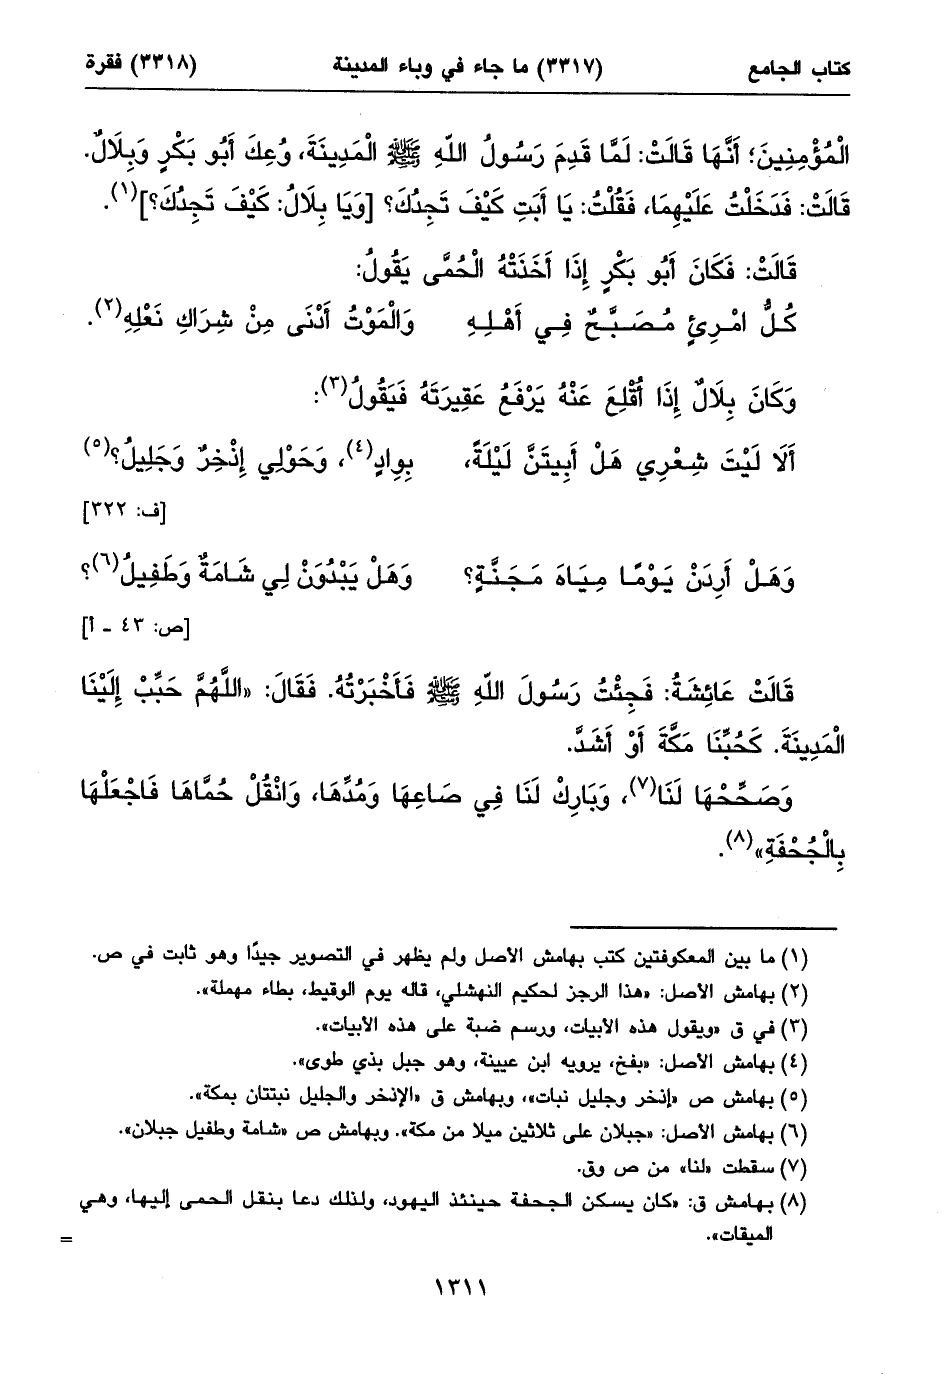 كتاب الجامع (٣٣١٧) ما جاء في وباء المدينة (٣٣١٨) فقرة
الْمُؤْمِنِينَ؛ أَنَّهَا قَالَتْ: لَمَّا قَدِمَ رَسُولُ اللّهِ ﷺ الْمَدِينَةَ، وُعِكَ أَبُو بَكْرٍ وَبِلَالٌ.
قَالَتْ: فَدَخَلْتُ عَلَيْهِمَا، فَقُلْتُ: يَا أَبَتِ كَيْفَ تَجِدُكَ؟ [وَيَا بِلَالُ: كَيْفَ تَجِدُكَ؟](١).
قَالَتْ: فَكَانَ أَبُو بَكْرٍ إِذَا أَخَذَتْهُ الْحُمَّى يَقُولُ:
كُلُّ امْرِئٍ مُصَبَّحٌ فِي أَهْلِهِ وَالْمَوْتُ أَدْنَى مِنْ شِرَاكِ نَعْلِهِ(٢).
وَكَانَ بِلَالٌ إِذَا أُقْلِعَ عَنْهُ يَرْفَعُ عَقِيرَتَهُ فَيَقُولُ(٣):
أَلَا لَيْتَ شِعْرِي هَلْ أَبِيتَنَّ لَيْلَةً، بِوِادٍ(٤)، وَحَوْلِي إِذْخِرٌ وَجَلِيلُ؟(٥)
[ف: ٣٢٢]
وَهَلْ أَرِدَنْ يَوْمًا مِيَاهَ مَجَنَّةٍ؟ وَهَلْ يَبْدُوَنْ لِي شَامَةٌ وَطَفِيلُ(٦)؟
[ص: ٤٣ - أ]
قَالَتْ عَائِشَةُ: فَجِئْتُ رَسُولَ اللّهِ ﷺ فَأَخْبَرْتُهُ. فَقَالَ: «اللَّهُمَّ حَبِّبْ إِلَيْنَا
الْمَدِينَةَ. كَحُبِّنَا مَكَّةَ أَوْ أَشَدَّ.
وَصَحِّحْهَا لَنَا(٧)، وَبَارِكْ لَنَا فِي صَاعِهَا وَمُدِّهَا، وَانْقُلْ حُمَّاهَا فَاجْعَلْهَا
بِالْجُحْفَةِ»(٨).
(١) ما بين المعكوفتين كتب بهامش الأصل ولم يظهر في التصوير جيدًا وهو ثابت في ص.
(٢) بهامش الأصل: «هذا الرجز لحكيم النهشلي، قاله يوم الوقيط، بطاء مهملة».
(٣) في ق «ويقول هذه الأبيات، ورسم ضبة على هذه الأبيات».
(٤) بهامش الأصل: «بفخ، يرويه ابن عيينة، وهو جبل بذي طوى».
(٥) بهامش ص «إذخر وجليل نبات»، وبهامش ق «الإذخر والجليل نبتتان بمكة».
(٦) بهامش الأصل: «جبلان على ثلاثين ميلا من مكة». وبهامش ص «شامة وطفيل جبلان».
(٧) سقطت «لنا» من ص وق.
(٨) بهامش ق: «كان يسكن الجحفة حينئذ اليهود، ولذلك دعا بنقل الحمى إليها، وهي
الميقات». =
١٣١١